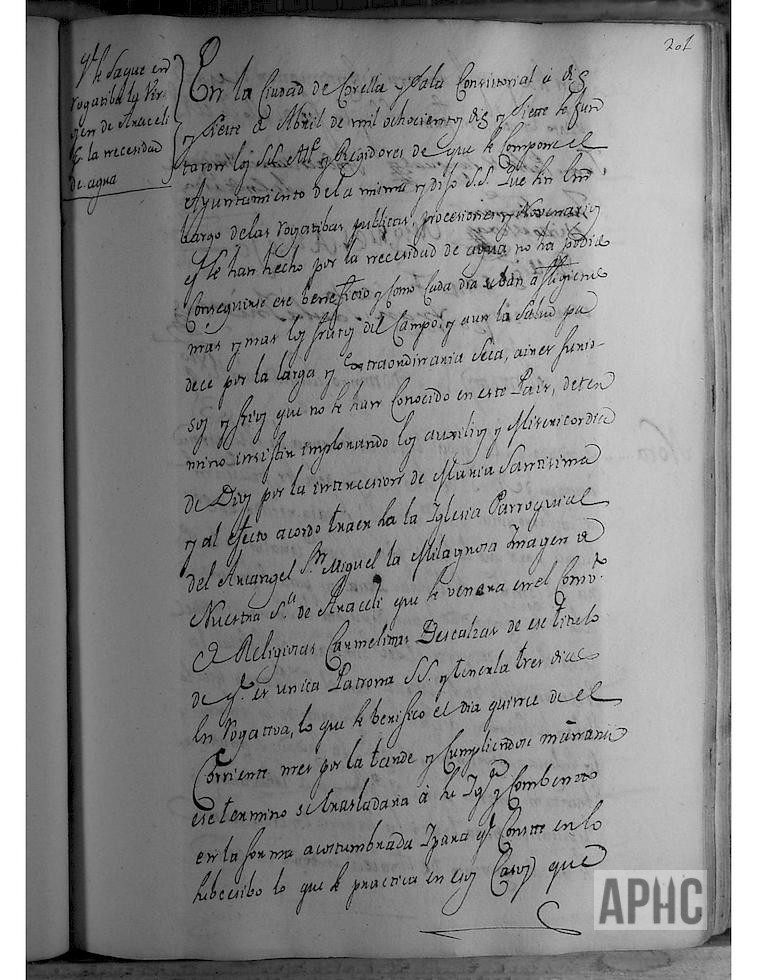 201
q.e se saque en
rogatiba la Vir-
gen de Araceli
p.r la necesidad
de agua
En la Ciudad de Corella y Sala Consistorial à diez
y siete de Abril de mil ochocientos y diez y siete se jun
taron los S.S. Alc.e y Regidores de que se compone el
Ayuntamiento de la misma y dijo S.S. Que sin em
bargo de las rogatibas publicas, procesiones y Novenarios
q.e se han hecho por la necesidad de agua no ha podido
Conseguirse ese beneficio y como cada dia se ban afligiendo
mas y mas los frutos del Campo, y aun la Salud pa
dece por la larga y Extraordinaria Seca, aires furio-
sos y frios que no se han Conocido en este Pais, deter
mino insistir implorando los auxilios y Misericordia
de Dios por la intercesion de Maria Santisima
y al efecto acordo traer ha la Iglesia Parroquial
del Arcangel S.n Miguel la Milagrosa Imagen de
Nuestra S.ra de Araceli que se venera en el Conv.to
de Religiosas Carmelitas Descalzas de ese titulo
de q.e es unica Patrona S.S. y tenerla tres dias
en rogativa, lo que se berifico el dia quince de el
Corriente mes por la tarde y Cumpliendose mañana
ese termino se trasladara à su Ig.a y Combento
en la forma acostumbrada Y para q.e Conste en lo
subcesibo lo que se practica en esos Casos que
APHC